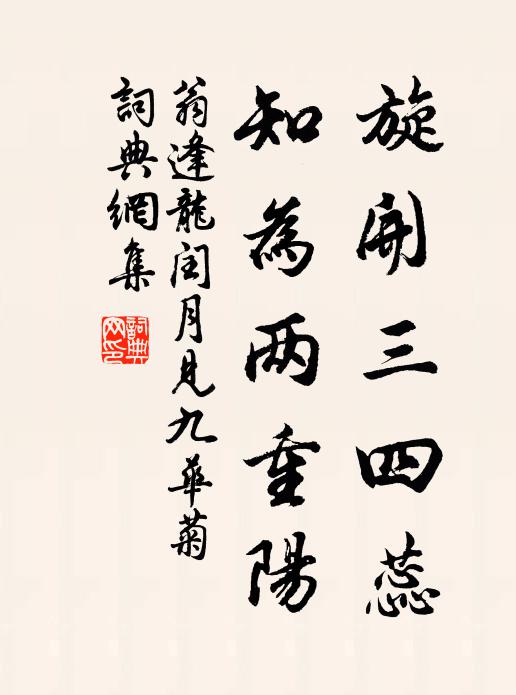 旋開三四蕊
知為兩重陽
翁逢龍閏月見九華菊
詞典網集
詞典网印